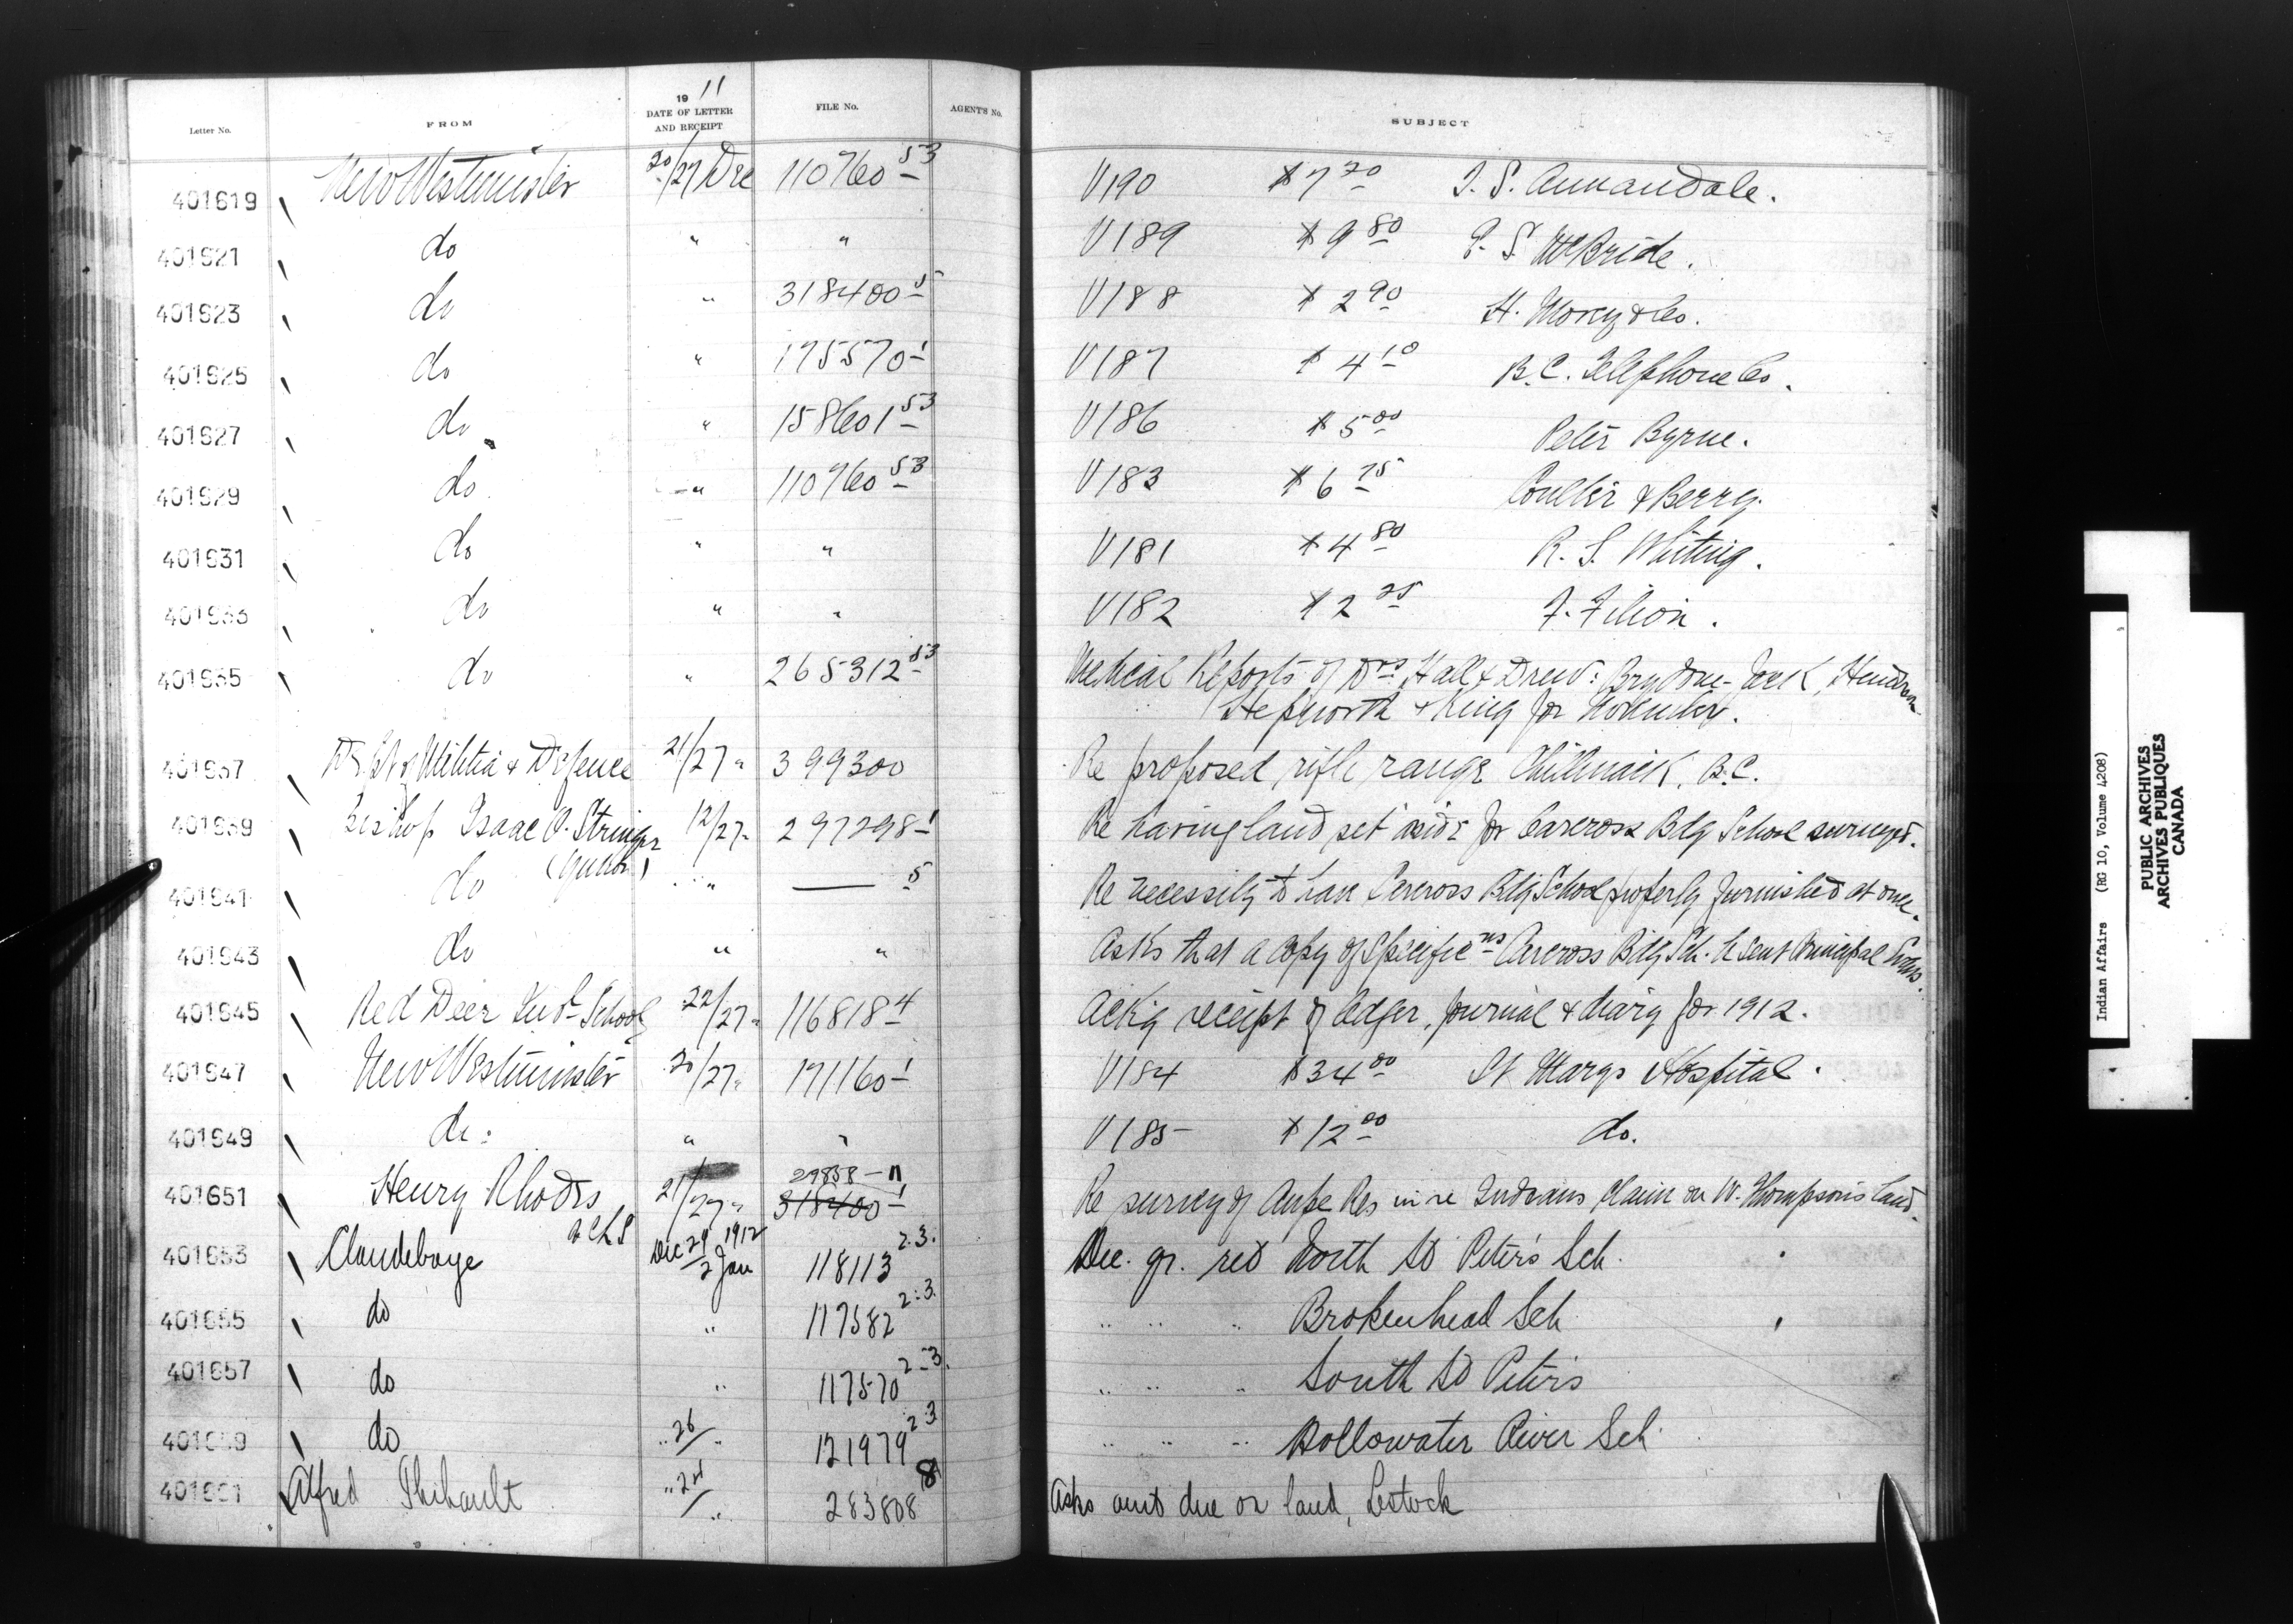 Letter No. FROM 1911 DATE OF LETTER AND RECEIPT FILE No. AGENT'S No. SUBJECT
401619 New Westminster 20/27 Dec 110760 53 V190 $7 20 T. S. Annandale.
401621 do " " V189 $9 80 P. S. McBride.
401623 do " 318400 5 V188 $2 90 H. Morey & Co.
401625 do " 175570-1 V187 $4 10 B.C. Telephone Co.
401627 do " 158601 53 V186 $5 00 Peter Byrne.
401629 do " 110760 53 V183 $6 75 Coulter & Berry.
401631 do " " V181 $4 80 R. S. Whiting.
401633 do " " V182 $2 25 F. Filion.
401635 do " 265312 53 Medical Reports of Drs Hall & Drew: Brydone-Jack, Henderson
Hepworth & King for November.
401637 Dept of Militia & Defence 21/27 " 399300 Re proposed rifle range Chilliwack, B.C.
401639 Bishop Isaac O. Stringer 12/27 " 297298-1 Re having land set aside for Carcross Bdg School surveyed.
(Yukon)
401641 do " —— 5 Re necessity to have Carcross Bdg School properly furnished at once.
401643 do " " Asks that a copy of Specific ns Carcross Bdg Sch. be sent Principal Evans.
401645 Red Deer Indl School 22/27 " 116818 4 Ackg receipt of ledger, journal & diary for 1912.
401647 New Westminster 20/27 " 171160-1 V184 $34 00 St Marys Hospital.
401649 do: " " V185 $12 00 do.
401651 Henry Rhodes 21/27 " 29858-11 318400-1 Re survey of Res in re Indians claim on W. Thompson's land.
B C L S
401653 Clandeboye Dec 29 1912 / 2 Jan 118113 2.3. Dec. qr. ret North St Peter's Sch.
401655 do " 117582 2:3. " " " Brokenhead Sch
401657 do " 117570 2-3. " " " South St Peters
401659 do " 26/ " 121979 2:3 " " " Hollowater River Sch.
401661 Alfred Thibault " 24/ " 283808 8 Asks amt due on land, Lestock
Indian Affairs (RG 10, Volume 4208)
PUBLIC ARCHIVES
ARCHIVES PUBLIQUES
CANADA